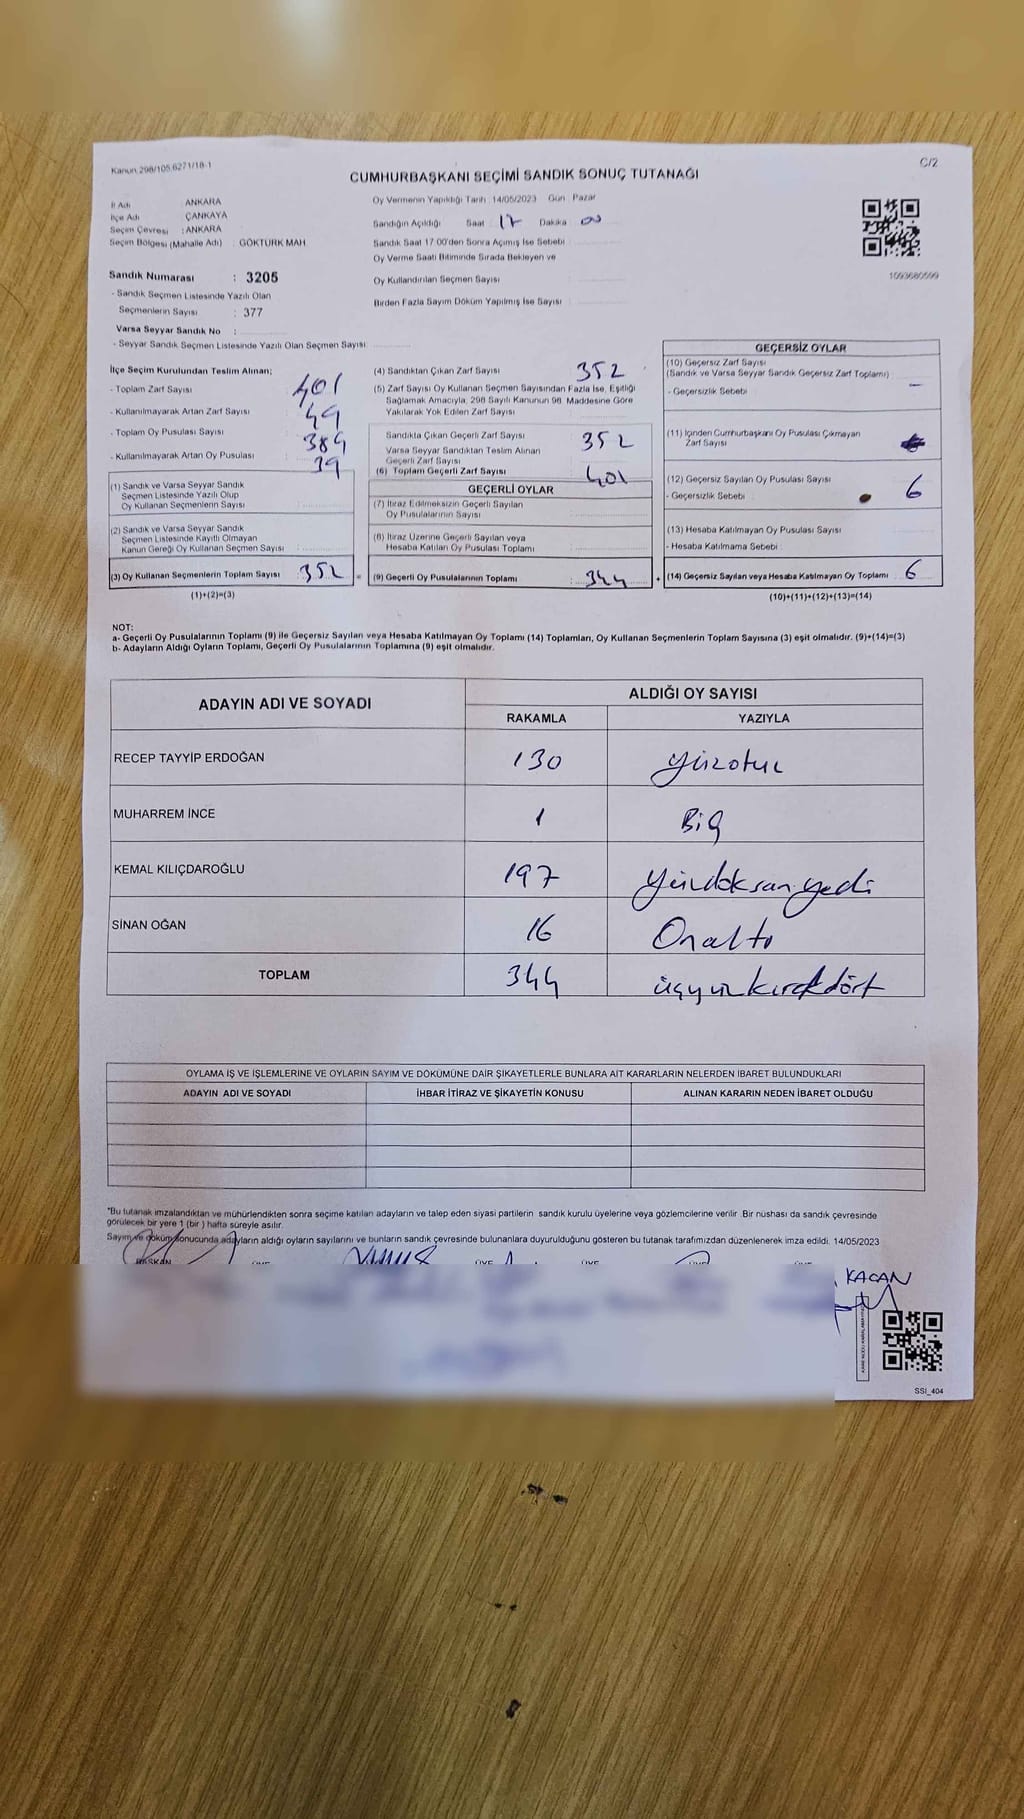 Kanun 298/105,6271/18-1
C/2
CUMHURBAŞKANI SEÇİMİ SANDIK SONUÇ TUTANAĞI
İl Adı ANKARA
İlçe Adı ÇANKAYA
Seçim Çevresi : ANKARA
Seçim Bölgesi (Mahalle Adı) : GÖKTÜRK MAH.
Sandık Numarası : 3205
- Sandık Seçmen Listesinde Yazılı Olan
Seçmenlerin Sayısı : 377
Varsa Seyyar Sandık No :
- Seyyar Sandık Seçmen Listesinde Yazılı Olan Seçmen Sayısı
Oy Vermenin Yapıldığı Tarih : 14/05/2023 Gün : Pazar
Sandığın Açıldığı Saat 17 Dakika 00
Sandık Saat 17.00'den Sonra Açımış İse Sebebi
Oy Verme Saati Bitiminde Sırada Bekleyen ve
Oy Kullandırılan Seçmen Sayısı
Birden Fazla Sayım Döküm Yapılmış İse Sayısı
1093680599
İlçe Seçim Kurulundan Teslim Alınan;
- Toplam Zarf Sayısı 401
- Kullanılmayarak Artan Zarf Sayısı 49
- Toplam Oy Pusulası Sayısı 389
- Kullanılmayarak Artan Oy Pusulası 39
(1) Sandık ve Varsa Seyyar Sandık
Seçmen Listesinde Yazılı Olup
Oy Kullanan Seçmenlerin Sayısı
(2) Sandık ve Varsa Seyyar Sandık
Seçmen Listesinde Kayıtlı Olmayan
Kanun Gereği Oy Kullanan Seçmen Sayısı
(3) Oy Kullanan Seçmenlerin Toplam Sayısı : 352 =
(1)+(2)=(3)
(4) Sandıktan Çıkan Zarf Sayısı 352
(5) Zarf Sayısı Oy Kullanan Seçmen Sayısından Fazla İse, Eşitliği
Sağlamak Amacıyla, 298 Sayılı Kanunun 98. Maddesine Göre
Yakılarak Yok Edilen Zarf Sayısı
Sandıkta Çıkan Geçerli Zarf Sayısı 352
Varsa Seyyar Sandıktan Teslim Alınan
Geçerli Zarf Sayısı
(6) Toplam Geçerli Zarf Sayısı 401
GEÇERLİ OYLAR
(7) İtiraz Edilmeksizin Geçerli Sayılan
Oy Pusulalarının Sayısı
(8) İtiraz Üzerine Geçerli Sayılan veya
Hesaba Katılan Oy Pusulası Toplamı
(9) Geçerli Oy Pusulalarının Toplamı : 344 +
GEÇERSİZ OYLAR
(10) Geçersiz Zarf Sayısı
(Sandık ve Varsa Seyyar Sandık Geçersiz Zarf Toplamı)
- Geçersizlik Sebebi –
(11) İçinden Cumhurbaşkanı Oy Pusulası Çıkmayan
Zarf Sayısı
(12) Geçersiz Sayılan Oy Pusulası Sayısı 6
- Geçersizlik Sebebi
(13) Hesaba Katılmayan Oy Pusulası Sayısı
- Hesaba Katılmama Sebebi
(14) Geçersiz Sayılan veya Hesaba Katılmayan Oy Toplamı 6
(10)+(11)+(12)+(13)=(14)
NOT:
a- Geçerli Oy Pusulalarının Toplamı (9) ile Geçersiz Sayılan veya Hesaba Katılmayan Oy Toplamı (14) Toplamları, Oy Kullanan Seçmenlerin Toplam Sayısına (3) eşit olmalıdır. (9)+(14)=(3)
b- Adayların Aldığı Oyların Toplamı, Geçerli Oy Pusulalarının Toplamına (9) eşit olmalıdır.
ADAYIN ADI VE SOYADI ALDIĞI OY SAYISI
RAKAMLA YAZIYLA
RECEP TAYYİP ERDOĞAN 130 yüzotuz
MUHARREM İNCE 1 Bir
KEMAL KILIÇDAROĞLU 197 yüzdoksanyedi
SİNAN OĞAN 16 Onaltı
TOPLAM 344 üçyüzkırkdört
OYLAMA İŞ VE İŞLEMLERİNE VE OYLARIN SAYIM VE DÖKÜMÜNE DAİR ŞİKAYETLERLE BUNLARA AİT KARARLARIN NELERDEN İBARET BULUNDUKLARI
ADAYIN ADI VE SOYADI İHBAR İTİRAZ VE ŞİKAYETİN KONUSU ALINAN KARARIN NEDEN İBARET OLDUĞU
*Bu tutanak imzalandıktan ve mühürlendikten sonra seçime katılan adayların ve talep eden siyasi partilerin sandık kurulu üyelerine veya gözlemcilerine verilir. Bir nüshası da sandık çevresinde
görülecek bir yere 1 (bir ) hafta süreyle asılır.
Sayım ve döküm sonucunda adayların aldığı oyların sayılarını ve bunların sandık çevresinde bulunanlara duyurulduğunu gösteren bu tutanak tarafımızdan düzenlenerek imza edildi. 14/05/2023
BAŞKAN
KAÇAN
SSI_404